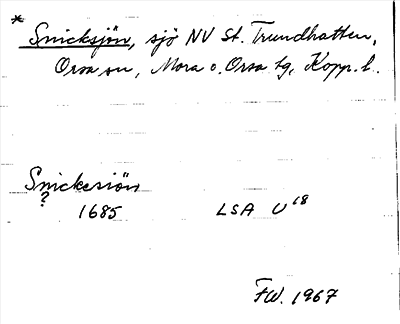 * Snicksjön, sjö NV St. Trundhatten,
Orsa sn, Mora o. Orsa tg, Kopp. l.
Snickesiön
?
1685 LSA U18
FW. 1967